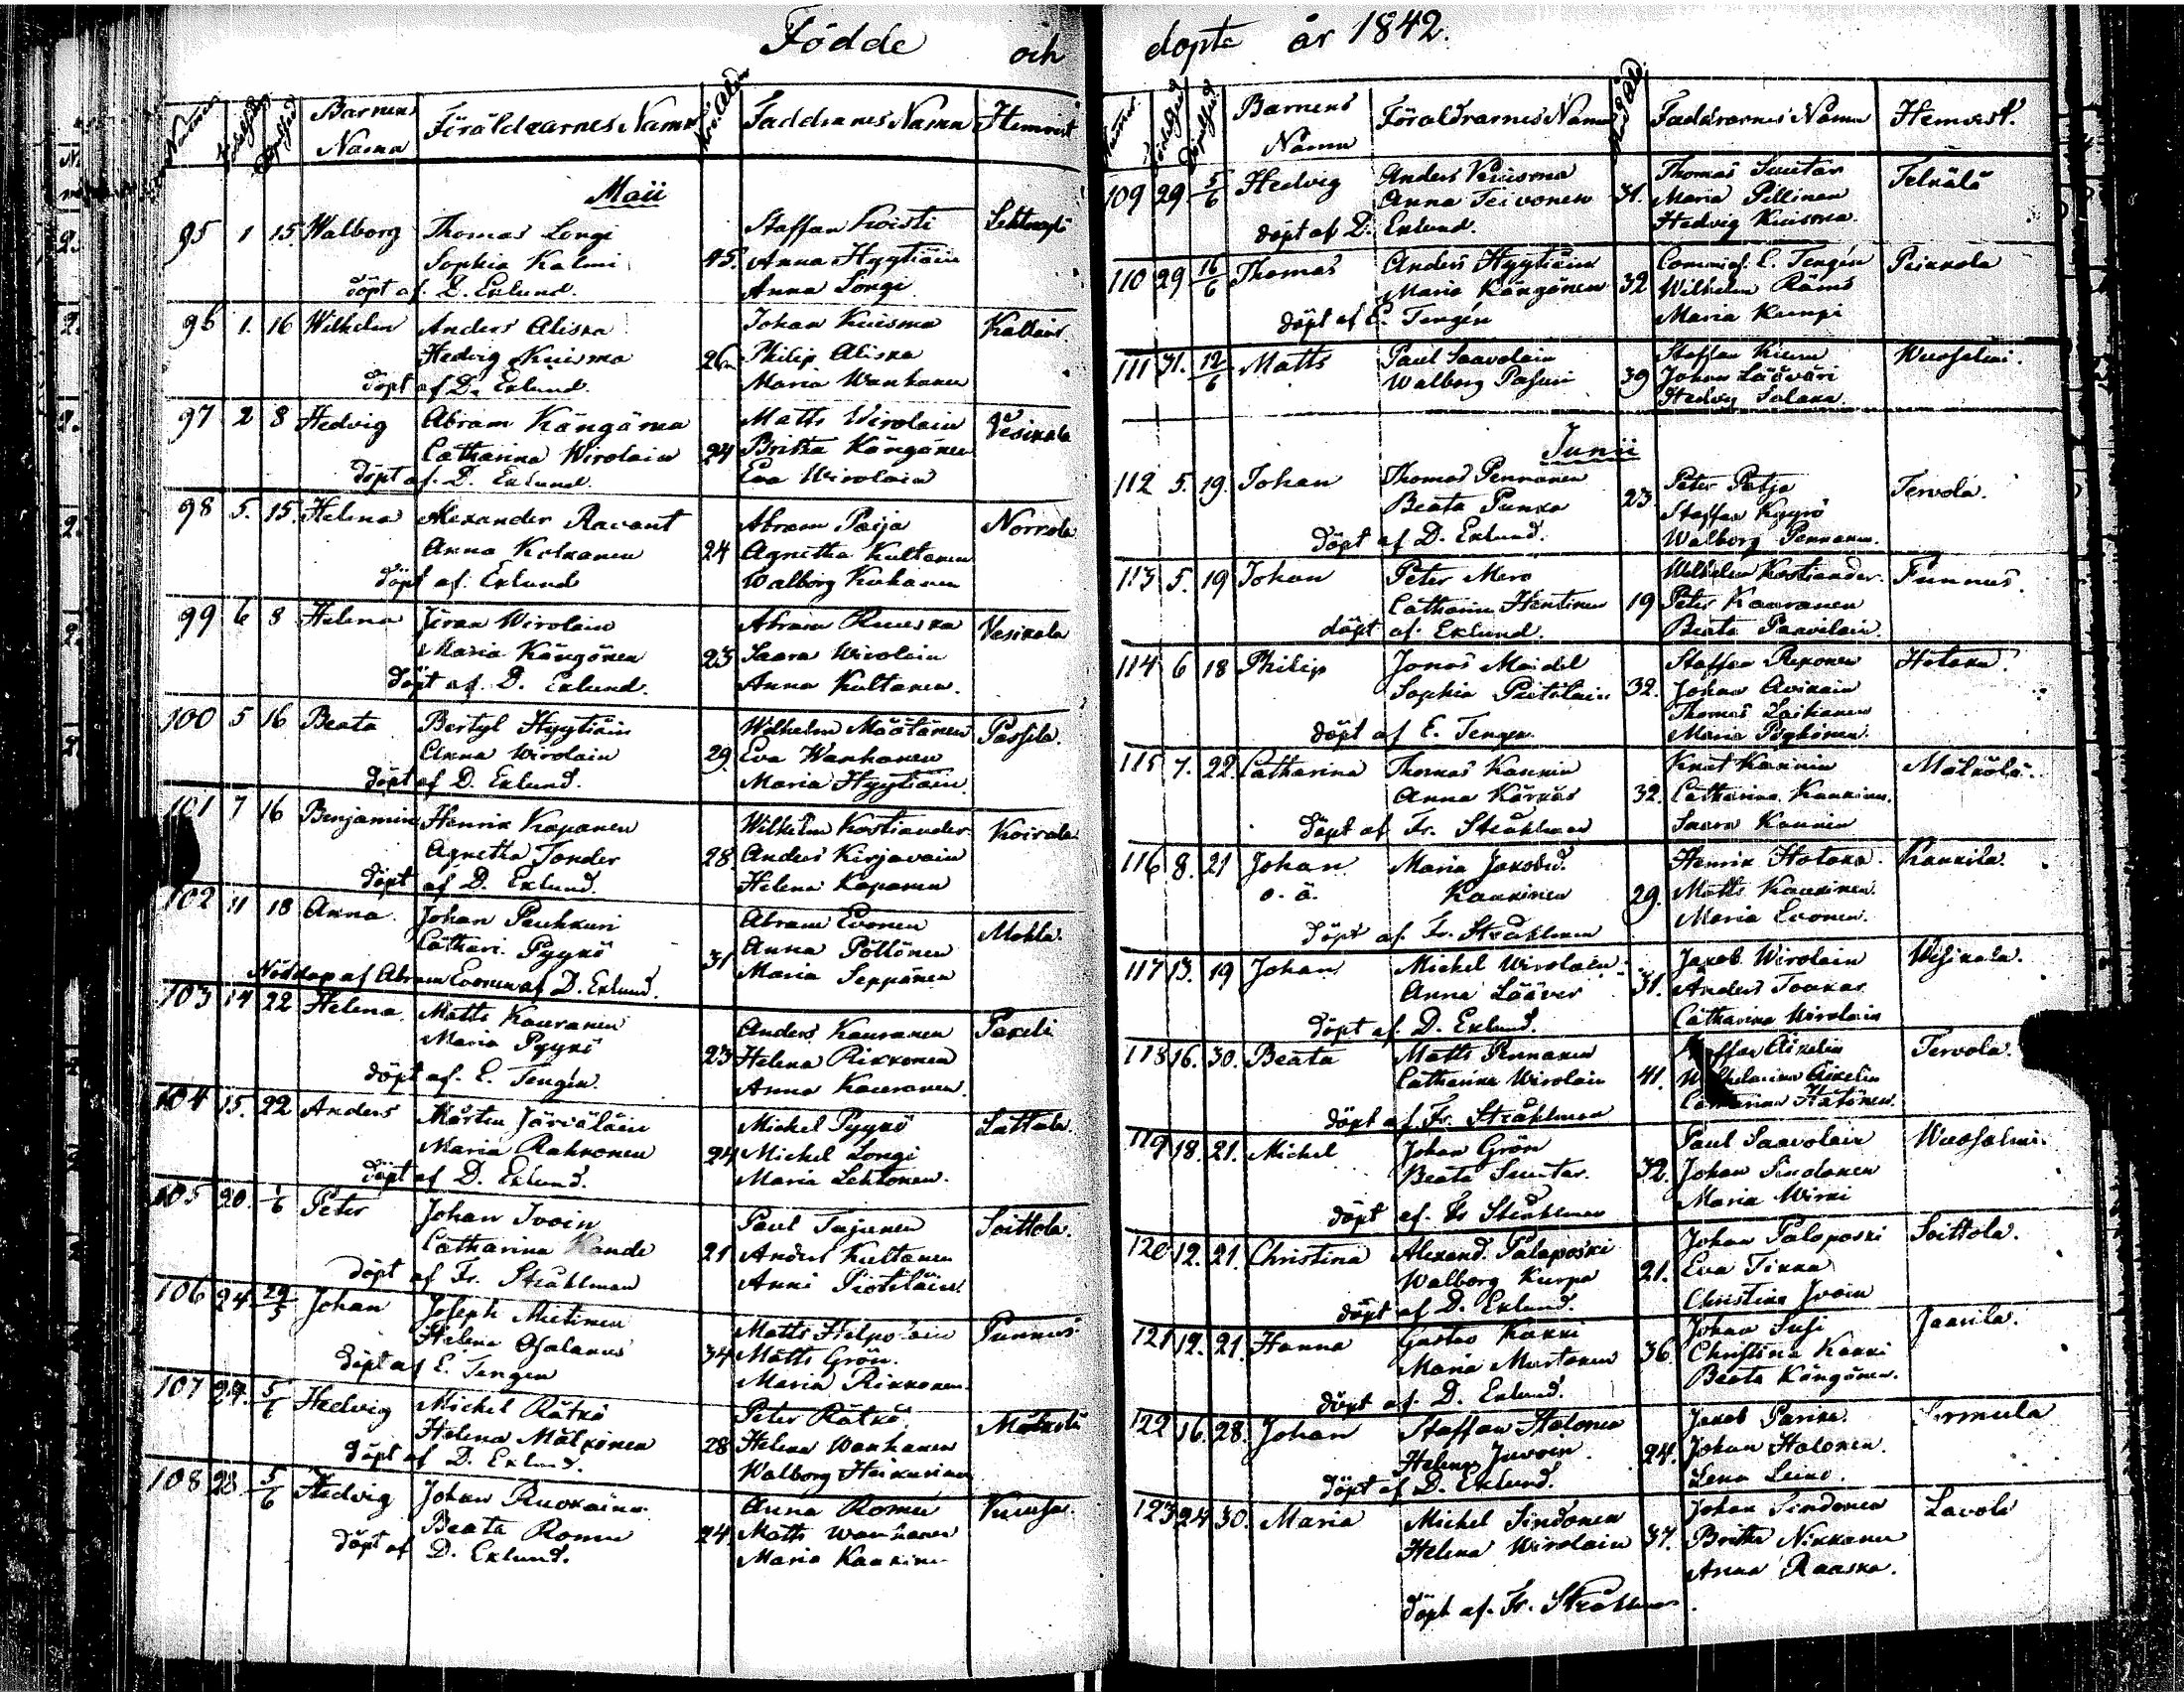 Födde och
Nummer Födelsed. Döpelsed. Barnens Namn Föräldrarnes Namn Mod. Ålder Faddranes Namn Hemvist
Maii
95 1 15 Walborg Thomas Longi Staffan Koisti
Sophia Kalmi 45. Anna Hyytiäin
döpt af. D. Eklund. Anna Longi
96 1. 16 Wilhelm Anders Aliska Johan Kuisma
Hedvig Kuisma 26 Philip Aliska
döpt af D. Eklund. Maria Wanhanen
97 2 8 Hedvig Abram Kängänen Matts Wirolain Vesikkala
Catharina Wirolain 24 Britha Kängänen
döpt af. D. Eklund. Eva Wirolain
98 5. 15. Helena Alexander Ravant Abram Paija Norrola
Anna Kolkanen 24 Agnetha Kultanen
döpt af. Eklund Walborg Kukanen
99 6 8 Helena Jöran Wirolain Abram Ruuska Vesikala
Maria Kängänen 23 Saara Wirolain
döpt af. D. Eklund. Anna Kultanen.
100 5 16 Beata Bertyl Hyytiäin Wilhelm Määtänen Passila.
Anna Wirolain 29. Eva Wanhanen
döpt af D. Eklund. Maria Hyytiäin.
101 7 16 Benjamin Henrik Kaponen Wilhelm Kostiander Koirala
Agnetha Tonder 28. Anders Kirjavain
döpt af D. Eklund. Helena Kaponen
102 11 18 Anna. Johan Peuhkuri Abram Evonen Mohla.
Cathari. Pyykö 31 Anna Pöllönen
Nöddop af Abram Evonen af D. Eklund. Maria Seppänen
103 14 22 Helena. Matts Kauranen Anders Kauranen Pakeli
Maria Pyykö 23 Helena Rikkonen
döpt af. E. Tengén. Anna Kauranen.
104 15. 22 Anders Mårten Järviäläin Michel Pyykö Lattula.
Maria Rahkonen 24 Michel Longi
döpt af D. Eklund. Maria Lehtonen.
105 20. 1/6 Peter Johan Ivoin Paul Tujunen Soittola.
Catharina Kande 21 Anders Kultanen
döpt af Fr. Stråhlman Anni Piotuläin.
106 24. 29/5 Johan Joseph Mietinen Matts Helpolain Punnus.
Helena Asalanus 34 Matts Grön.
döpt af E. Tengen Maria Rikkonen.
107 24. 5/6 Hedvig Michel Rätkö Peter Rätkö Mälkölä
Helena Mälkönen 28 Helena Wanhanen
döpt af D. Eklund. Walborg Heikurinen
108 28. 5/6 Hedvig Johan Ruokainen Anna Romu
Beata Romu 24. Matts Wanhanen
döpt af D. Eklund. Maria Kaukinen
döpte år 1842.
Nummer. Födelsed. Döpelsed. Barnens Namn Föräldrarnes Namn Mod. Åld. Faddrarnes Namn Hemvist.
109 29 5/6 Hedvig Anders Kuisma Thomas Suutar Telkälä
Anna Teivonen 31. Maria Pillinen
döpt af D. Eklund. Hedvig Kuisma.
110 29 16/6 Thomas Anders Hyytiäin E. Tengén Peikkola
Maria Kängänen 32 Wilhelm Räms
döpt af E. Tengén Maria Kumpi
111 31. 12/6 Matts Paul Saavolain Staffan Kiuru Wuosalmi.
Walborg Pasuri 39 Johan Lääväri
Hedvig Salaka.
Junii
112 5. 19. Johan Thomas Pennanen Peter Patja Tervola.
Beata Punka 23. Staffan Kyyrö
döpt af D. Eklund. Walborg Pennanen.
113 5. 19 Johan Peter Mero Wilhelm Kostiander. Punnus.
Catharina Hentinen 19 Peter Kauranen
döpt af. Eklund. Beata Paavilain.
114 6 18 Philip Jonas Maidel Staffan Reponen Hotaka.
Sophia Pietiläin 32. Johan Avikain
Thomas Laitianen
döpt af E. Tengen. Maria Pöyhönen.
115 7. 22. Catharina Thomas Kaukin Knut Kaukin Mälkölä.
Anna Kärkäs 32. Catharina Kaukinen.
döpt af Fr. Stråhlman Saara Kaukin
116 8. 21 Johan Maria Jakobsd. Henrik Hotaka. Kaukila.
o. ä. Kaukinen 29. Matts Kaukinen.
döpt af. Fr. Stråhlman Maria Evonen.
117 13. 19 Johan Michel Wirolain Jakob Wirolain Wesikala.
Anna Lääver 31. Anders Toukar
döpt af. D. Eklund. Catharina Wirolain
118 16. 30. Beata Matts Pennanen Staffan Äikelin Tervola.
Catharina Wirolain 41. Wilhelmina Äikelin
döpt af. Fr. Stråhlman Catharina Hätönen.
119 18. 21. Michel Johan Grön Paul Saavolain Wuosalmi.
Beata Suutar. 32. Johan Sindonen
döpt af. Fr Stråhlman Maria Wirki
120 12. 21. Christina Alexand. Palaposki Johan Palaposki Soittola.
Walborg Kurpa 21. Eva Tikka
döpt af D. Eklund. Christina Ivoin
121 12. 21. Hanna Gustav Kokki Johan Susi Jaarila.
Maria Martonen 36. Christina Kokki
döpt af. D. Eklund. Beata Kängänen.
122 16. 28. Johan Staffan Halonen Jakob Parika.
Helena Juvoin 24. Johan Halonen.
döpt af D. Eklund. Lena Leino.
123 24 30. Maria Michel Sindonen Johan Sindonen Lavola
Helena Wirolain 37. Britha Nikkanen
Anna Raaska.
döpt af. Fr. Stråhlman.